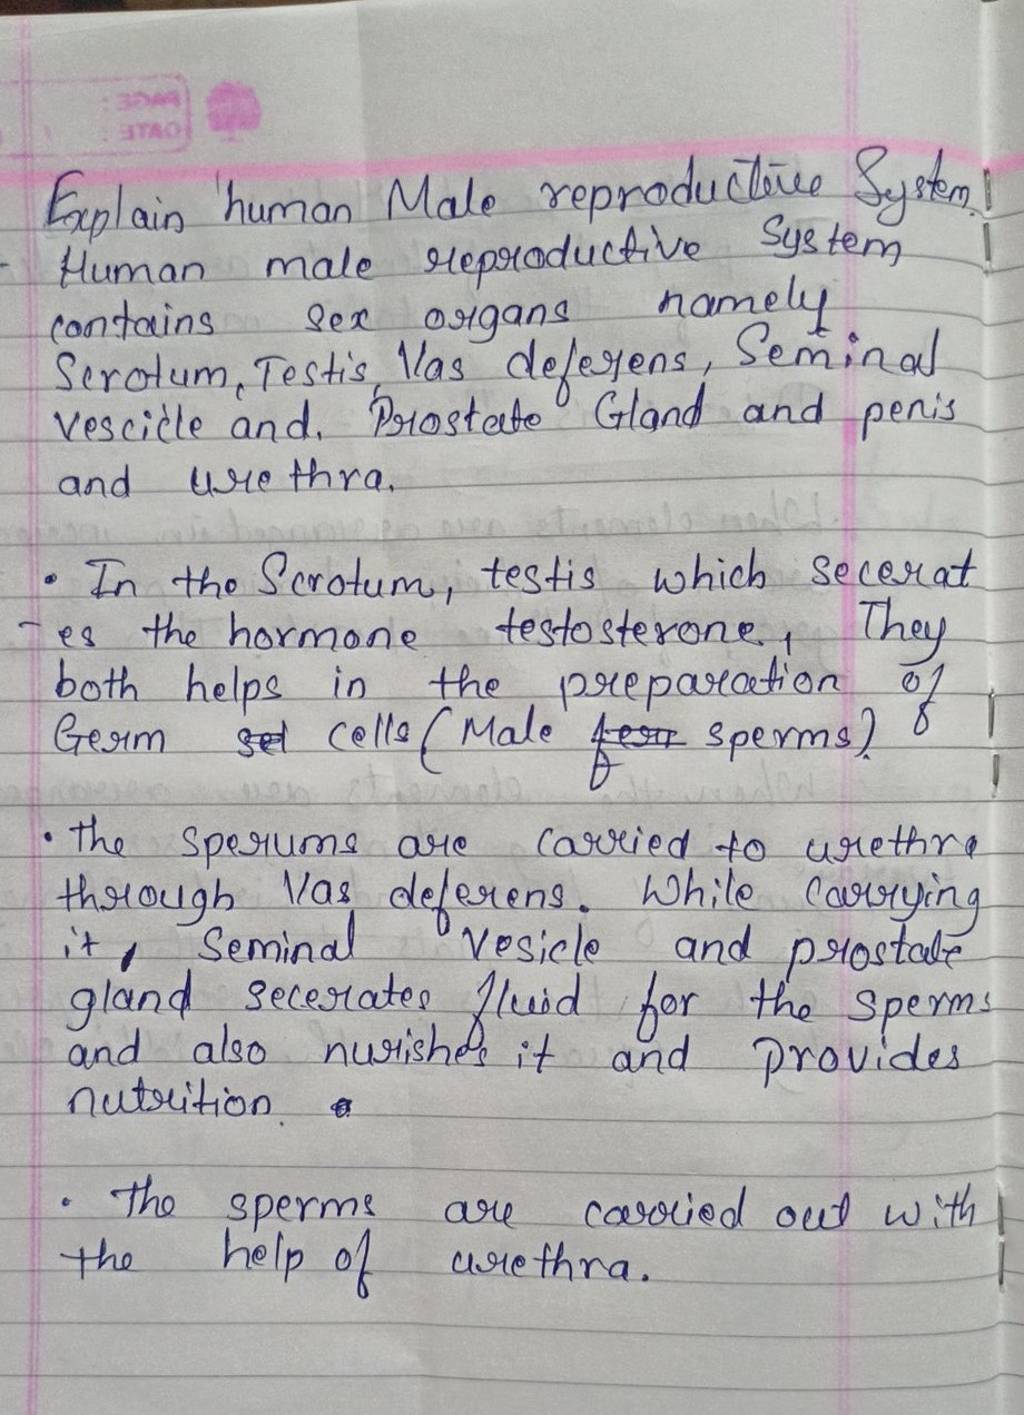 PAGE :
DATE :
Explain human Male reproductive System.
Human male reproductive System
contains sex organs namely
Scrotum, Testis, Vas deferens, Seminal
Vescicle and. Prostate Gland and penis
and urethra.
• In the Scrotum, testis which secerat
es the hormone testosterone, They
both helps in the preparation of
Germ sel cells (Male sperms).
• The sperums are carried to urethra
through Vas deferens. While carrying
it, Seminal Vesicle and prostate
gland secerates fluid for the sperms
and also nurishes it and provides
nutrition.
• The sperms are carried out with
the help of urethra.